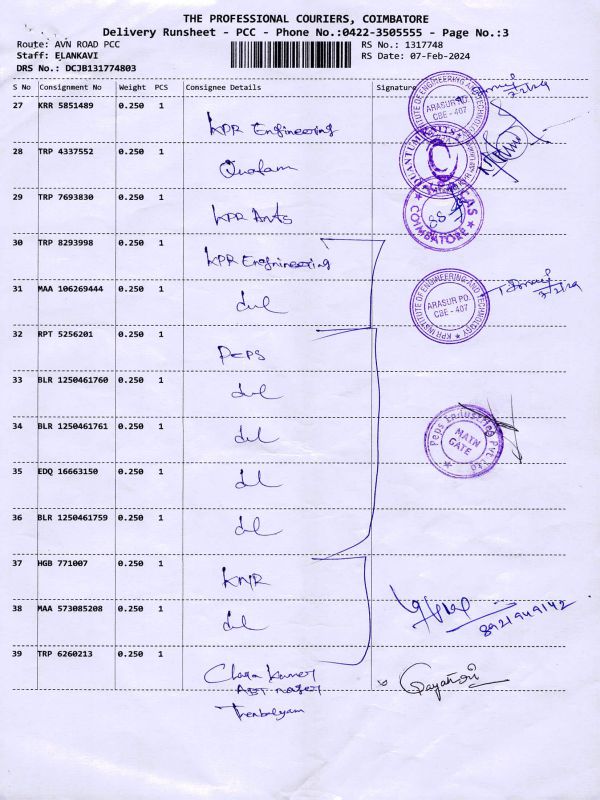 THE PROFESSIONAL COURIERS, COIMBATORE
Delivery Runsheet - PCC - Phone No.:0422-3505555 - Page No.:3
Route: AVN ROAD PCC
RS No.: 1317748
Staff: ELANKAVI
RS Date: 07-Feb-2024
DRS No.: DCJB131774803
S No Consignment No Weight PCS Consignee Details Signature
27 KRR 5851489 0.250 1
KPR Engineering
KPR INSTITUTE OF ENGINEERING AND TECHNOLOGY
ARASUR PO.
CBE - 407
28 TRP 4337552 0.250 1
29 TRP 7693830 0.250 1
KPR Arts
COIMBATORE
30 TRP 8293998 0.250 1
KPR Engineering
31 MAA 106269444 0.250 1
KPR INSTITUTE OF ENGINEERING AND TECHNOLOGY
ARASUR PO.
CBE - 407
32 RPT 5256201 0.250 1
PEPS
33 BLR 1250461760 0.250 1
34 BLR 1250461761 0.250 1
Peps Industries Pvt Ltd
MAIN
GATE
35 EDQ 16663150 0.250 1
36 BLR 1250461759 0.250 1
37 HGB 771007 0.250 1
KMR
8921949142
38 MAA 573085208 0.250 1
39 TRP 6260213 0.250 1
Gayathri